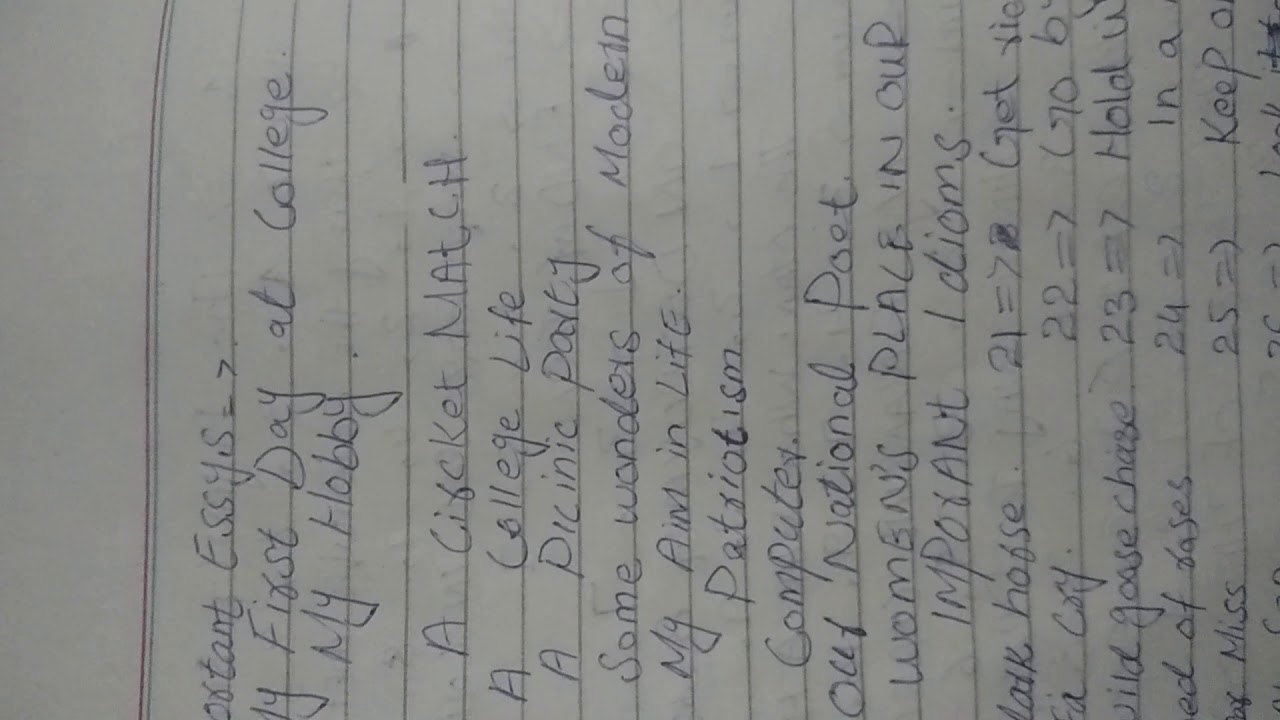 ortant Essys =>
My First Day at College.
My Hobby.
A Circket MAtCH.
A College Life
A Picinic party
Some wonders of Modern
My Aim in LifE.
Patriotism
Computer.
Our National Poet.
WOMEN'S PLACE IN OUR
IMPorANt Idioms.
dark horse. 21=> Get
cry. 22=> Go
wild goose chase 23=> Hold
ed of roses 24=> In a
Miss 25=> Keep